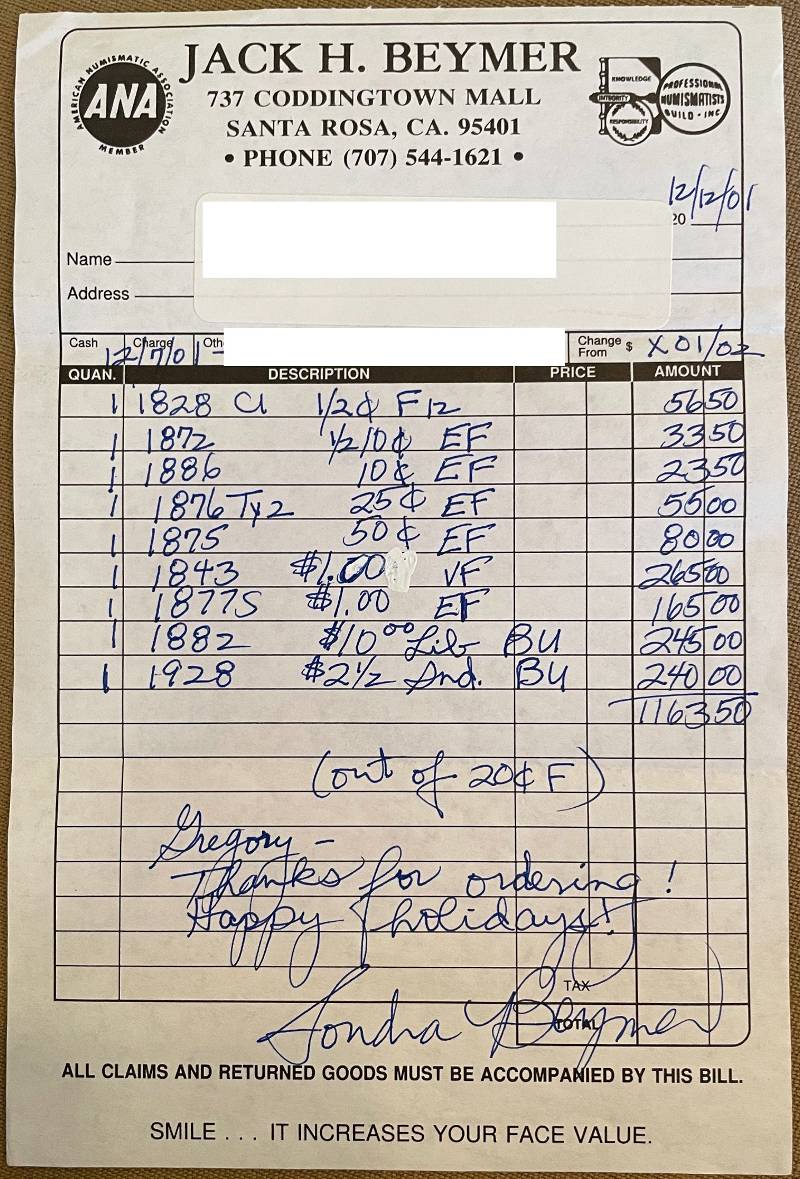 AMERICAN NUMISMATIC ASSOCIATION
ANA
MEMBER
JACK H. BEYMER
737 CODDINGTOWN MALL
SANTA ROSA, CA. 95401
• PHONE (707) 544-1621 •
KNOWLEDGE
INTEGRITY
RESPONSIBILITY
PROFESSIONAL
NUMISMATISTS
GUILD - INC
12/12/01
20
Name
Address
Cash Charge Oth Change From $ X01/02
12/7/01 -
QUAN. DESCRIPTION PRICE AMOUNT
1 1828 Cl 1/2¢ F12 56 50
1 1872 1/2 10¢ EF 33 50
1 1886 10¢ EF 23 50
1 1876 Ty 2 25¢ EF 55 00
1 1875 50¢ EF 80 00
1 1843 $1.00 VF 265 00
1 1877S $1.00 EF 165 00
1 1882 $10 00 Lib BU 245 00
1 1928 $2 1/2 Ind. BU 240 00
1163 50
(out of 20¢ F)
Gregory -
Thanks for ordering!
Happy holidays!
TAX
Sondra Beymer
TOTAL
ALL CLAIMS AND RETURNED GOODS MUST BE ACCOMPANIED BY THIS BILL.
SMILE . . . IT INCREASES YOUR FACE VALUE.